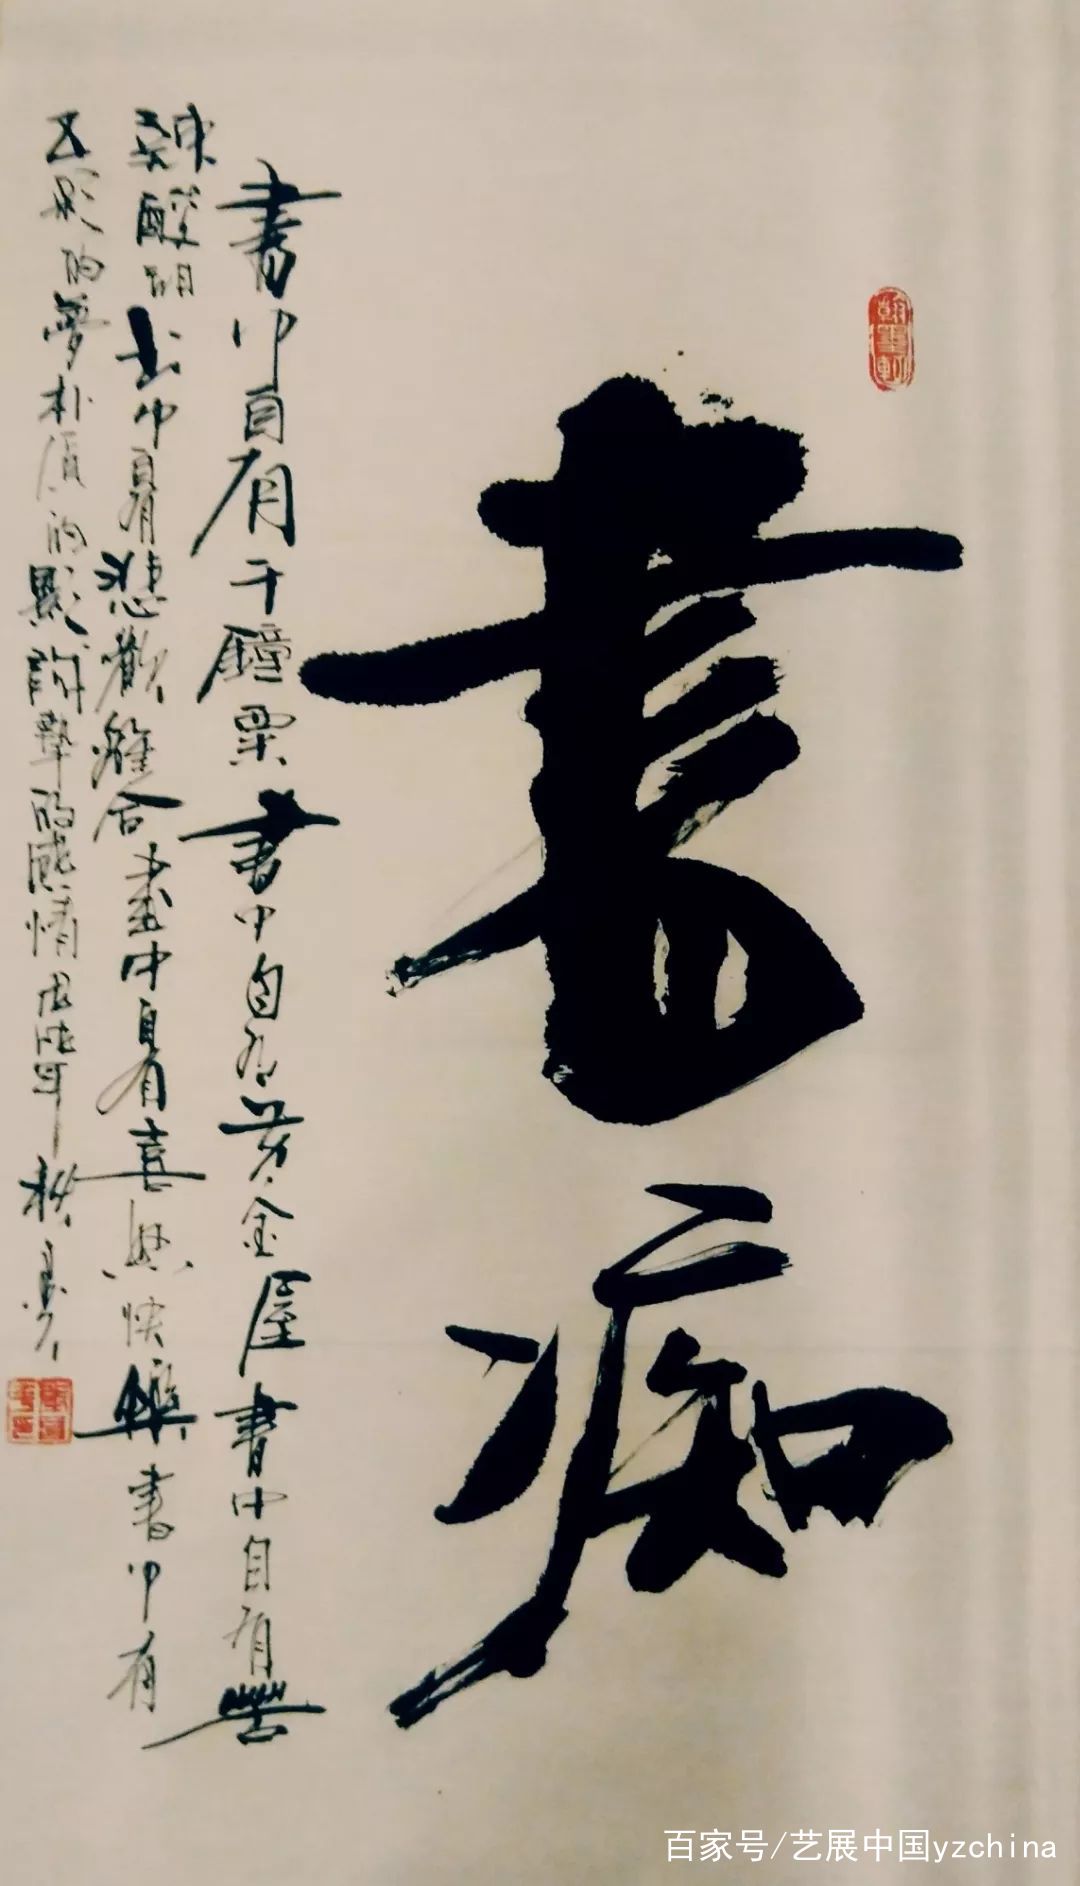 書痴
書中自有千鐘粟書中自有黄金屋書中自有苦
辣酸甜书中自有悲歡離合書中自有喜與快樂書中有
五彩的夢朴質的摯的感情
百家号/艺展中国yzchina